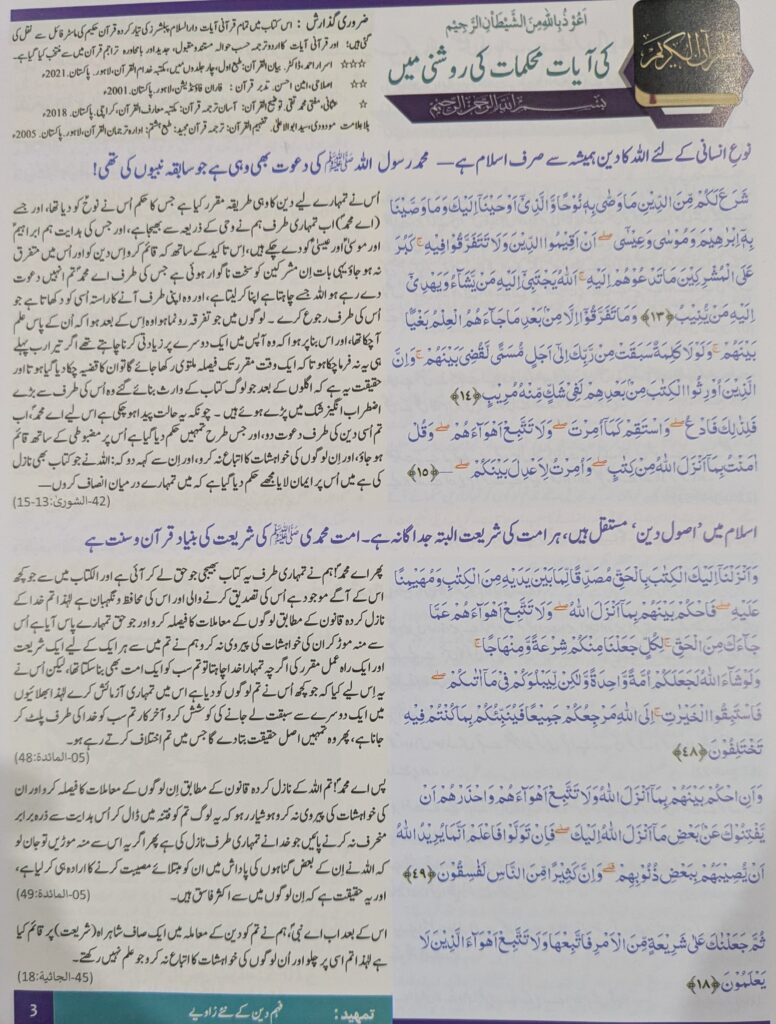 اَعُوْذُ بِاللّٰهِ مِنَ الشَّيْطٰنِ الرَّجِيْمِ
کی آیات محکمات کی روشنی میں
القرآن الکریم
بِسْمِ اللّٰهِ الرَّحْمٰنِ الرَّحِيْمِ
ضروری گذارش : اس کتاب میں تمام قرآنی آیات دارالسلام پبلشرز کی تیار کردہ قرآن حکیم کی ماسٹر فائل سے نقل کی
گئی ہیں؛ اور قرآنی آیات کا اردو ترجمہ حسب حوالہ مستند و مقبول، جدید اور بامحاورہ تراجم قرآن میں سے منتخب کیا گیا ہے۔
☆☆☆ اسرار احمد، ڈاکٹر۔ بیان القرآن: طبع اول، چار جلدوں میں، مکتبہ خدام القرآن، لاہور۔ پاکستان۔ 2021ء
☆☆ اصلاحی، امین احسن۔ تدبر قرآن : فاران فاؤنڈیشن، لاہور۔ پاکستان۔ 2001ء
☆ عثمانی، مفتی محمد تقی۔ توضیح القرآن : آسان ترجمہ قرآن: مکتبہ معارف القرآن، کراچی۔ پاکستان۔ 2018ء
بلا علامت مودودی، سید ابوالاعلیٰ۔ تفہیم القرآن: ترجمہ قرآن مجید: طبع ہشتم: ادارہ ترجمان القرآن، لاہور۔ پاکستان۔ 2005ء
نوعِ انسانی کے لئے اللہ کا دین ہمیشہ سے صرف اسلام ہے — محمد رسول اللہ ﷺ کی دعوت بھی وہی ہے جو سابقہ نبیوں کی تھی!
شَرَعَ لَكُمْ مِّنَ الدِّيْنِ مَا وَصّٰى بِهٖ نُوْحًا وَّالَّذِيْٓ اَوْحَيْنَآ اِلَيْكَ وَمَا وَصَّيْنَا
بِهٖٓ اِبْرٰهِيْمَ وَمُوْسٰى وَعِيْسٰٓى ۖ اَنْ اَقِيْمُوا الدِّيْنَ وَلَا تَتَفَرَّقُوْا فِيْهِ ۚ كَبُرَ
عَلَى الْمُشْرِكِيْنَ مَا تَدْعُوْهُمْ اِلَيْهِ ۚ اَللّٰهُ يَجْتَبِيْٓ اِلَيْهِ مَنْ يَّشَآءُ وَيَهْدِيْٓ
اِلَيْهِ مَنْ يُّنِيْبُ ﴿١٣﴾ وَمَا تَفَرَّقُوْٓا اِلَّا مِنْۢ بَعْدِ مَا جَآءَهُمُ الْعِلْمُ بَغْيًۢا
بَيْنَهُمْ ۚ وَلَوْلَا كَلِمَةٌ سَبَقَتْ مِنْ رَّبِّكَ اِلٰٓى اَجَلٍ مُّسَمًّى لَّقُضِيَ بَيْنَهُمْ ۚ وَاِنَّ
الَّذِيْنَ اُوْرِثُوا الْكِتٰبَ مِنْۢ بَعْدِهِمْ لَفِيْ شَكٍّ مِّنْهُ مُرِيْبٍ ﴿١٤﴾
فَلِذٰلِكَ فَادْعُ ۖ وَاسْتَقِمْ كَمَآ اُمِرْتَ ۖ وَلَا تَتَّبِعْ اَهْوَآءَهُمْ ۖ وَقُلْ
اٰمَنْتُ بِمَآ اَنْزَلَ اللّٰهُ مِنْ كِتٰبٍ ۖ وَاُمِرْتُ لِاَعْدِلَ بَيْنَكُمْ ۖ — ﴿١٥﴾
اُس نے تمہارے لیے دین کا وہی طریقہ مقرر کیا ہے جس کا حکم اُس نے نوحؑ کو دیا تھا، اور جسے
(اے محمدؐ) اب تمہاری طرف ہم نے وحی کے ذریعہ سے بھیجا ہے، اور جس کی ہدایت ہم ابراہیمؑ
اور موسیٰؑ اور عیسیٰؑ کو دے چکے ہیں، اِس تاکید کے ساتھ کہ قائم کرو اِس دین کو اور اُس میں متفرق
نہ ہو جاؤ۔ یہی بات اِن مشرکین کو سخت ناگوار ہوئی ہے جس کی طرف اے محمدؐ تم انہیں دعوت
دے رہے ہو اللہ جسے چاہتا ہے اپنا کر لیتا ہے، اور وہ اپنی طرف آنے کا راستہ اُسی کو دکھاتا ہے جو
اُس کی طرف رجوع کرے ۔ لوگوں میں جو تفرقہ رونما ہوا وہ اِس کے بعد ہوا کہ اُن کے پاس علم
آ چکا تھا، اور اس بنا پر ہوا کہ وہ آپس میں ایک دوسرے پر زیادتی کرنا چاہتے تھے اگر تیرا رب پہلے
ہی یہ نہ فرما چکا ہوتا کہ ایک وقت مقرر تک فیصلہ ملتوی رکھا جائے گا تو ان کا قضیہ چکا دیا گیا ہوتا اور
حقیقت یہ ہے کہ اگلوں کے بعد جو لوگ کتاب کے وارث بنائے گئے وہ اُس کی طرف سے بڑے
اضطراب انگیز شک میں پڑے ہوئے ہیں ۔ چونکہ یہ حالت پیدا ہو چکی ہے اس لیے اے محمدؐ، اب
تم اُسی دین کی طرف دعوت دو، اور جس طرح تمہیں حکم دیا گیا ہے اُس پر مضبوطی کے ساتھ قائم
ہو جاؤ، اور اِن لوگوں کی خواہشات کا اتباع نہ کرو، اور اِن سے کہہ دو کہ: اللہ نے جو کتاب بھی نازل
کی ہے میں اُس پر ایمان لایا مجھے حکم دیا گیا ہے کہ میں تمہارے درمیان انصاف کروں —
(42-الشوریٰ:13-15)
اسلام میں 'اصول دین' مستقل ہیں، ہر امت کی شریعت البتہ جداگانہ ہے۔ امت محمدی ﷺ کی شریعت کی بنیاد قرآن و سنت ہے
وَاَنْزَلْنَآ اِلَيْكَ الْكِتٰبَ بِالْحَقِّ مُصَدِّقًا لِّمَا بَيْنَ يَدَيْهِ مِنَ الْكِتٰبِ وَمُهَيْمِنًا
عَلَيْهِ ۖ فَاحْكُمْ بَيْنَهُمْ بِمَآ اَنْزَلَ اللّٰهُ ۖ وَلَا تَتَّبِعْ اَهْوَآءَهُمْ عَمَّا
جَآءَكَ مِنَ الْحَقِّ ۚ لِكُلٍّ جَعَلْنَا مِنْكُمْ شِرْعَةً وَّمِنْهَاجًا ۚ
وَلَوْ شَآءَ اللّٰهُ لَجَعَلَكُمْ اُمَّةً وَّاحِدَةً وَّلٰكِنْ لِّيَبْلُوَكُمْ فِيْ مَآ اٰتٰىكُمْ ۖ
فَاسْتَبِقُوا الْخَيْرٰتِ ۚ اِلَى اللّٰهِ مَرْجِعُكُمْ جَمِيْعًا فَيُنَبِّئُكُمْ بِمَا كُنْتُمْ فِيْهِ
تَخْتَلِفُوْنَ ﴿٤٨﴾
پھر اے محمدؐ! ہم نے تمہاری طرف یہ کتاب بھیجی جو حق لے کر آئی ہے اور الکتاب میں سے جو کچھ
اس کے آگے موجود ہے اُس کی تصدیق کرنے والی اور اس کی محافظ و نگہبان ہے لہٰذا تم خدا کے
نازل کردہ قانون کے مطابق لوگوں کے معاملات کا فیصلہ کرو اور جو حق تمہارے پاس آیا ہے اُس
سے منہ موڑ کر ان کی خواہشات کی پیروی نہ کرو ہم نے تم میں سے ہر ایک کے لیے ایک شریعت
اور ایک راہ عمل مقرر کی اگرچہ تمہارا خدا چاہتا تو تم سب کو ایک امت بھی بنا سکتا تھا، لیکن اُس نے
یہ اِس لیے کیا کہ جو کچھ اُس نے تم لوگوں کو دیا ہے اس میں تمہاری آزمائش کرے لہٰذا بھلائیوں
میں ایک دوسرے سے سبقت لے جانے کی کوشش کرو آخر کار تم سب کو خدا کی طرف پلٹ کر
جانا ہے، پھر وہ تمہیں اصل حقیقت بتا دے گا جس میں تم اختلاف کرتے رہے ہو۔
(05-المائدة:48)
وَاَنِ احْكُمْ بَيْنَهُمْ بِمَآ اَنْزَلَ اللّٰهُ وَلَا تَتَّبِعْ اَهْوَآءَهُمْ وَاحْذَرْهُمْ اَنْ
يَّفْتِنُوْكَ عَنْۢ بَعْضِ مَآ اَنْزَلَ اللّٰهُ اِلَيْكَ ۖ فَاِنْ تَوَلَّوْا فَاعْلَمْ اَنَّمَا يُرِيْدُ اللّٰهُ
اَنْ يُّصِيْبَهُمْ بِبَعْضِ ذُنُوْبِهِمْ ۗ وَاِنَّ كَثِيْرًا مِّنَ النَّاسِ لَفٰسِقُوْنَ ﴿٤٩﴾
پس اے محمدؐ! تم اللہ کے نازل کردہ قانون کے مطابق اِن لوگوں کے معاملات کا فیصلہ کرو اور ان
کی خواہشات کی پیروی نہ کرو ہوشیار رہو کہ یہ لوگ تم کو فتنہ میں ڈال کر اُس ہدایت سے ذرہ برابر
منحرف نہ کرنے پائیں جو خدا نے تمہاری طرف نازل کی ہے پھر اگر یہ اس سے منہ موڑیں تو جان لو
کہ اللہ نے اِن کے بعض گناہوں کی پاداش میں ان کو مبتلائے مصیبت کرنے کا ارادہ ہی کر لیا ہے،
اور یہ حقیقت ہے کہ اِن لوگوں میں سے اکثر فاسق ہیں۔ (05-المائدة:49)
ثُمَّ جَعَلْنٰكَ عَلٰى شَرِيْعَةٍ مِّنَ الْاَمْرِ فَاتَّبِعْهَا وَلَا تَتَّبِعْ اَهْوَآءَ الَّذِيْنَ لَا
يَعْلَمُوْنَ ﴿١٨﴾
اس کے بعد اب اے نبیؐ، ہم نے تم کو دین کے معاملہ میں ایک صاف شاہراہ (شریعت) پر قائم کیا
ہے لہٰذا تم اسی پر چلو اور اُن لوگوں کی خواہشات کا اتباع نہ کرو جو علم نہیں رکھتے۔
(45-الجاثیة:18)
تمہید: فہم دین کے نئے زاویے 3